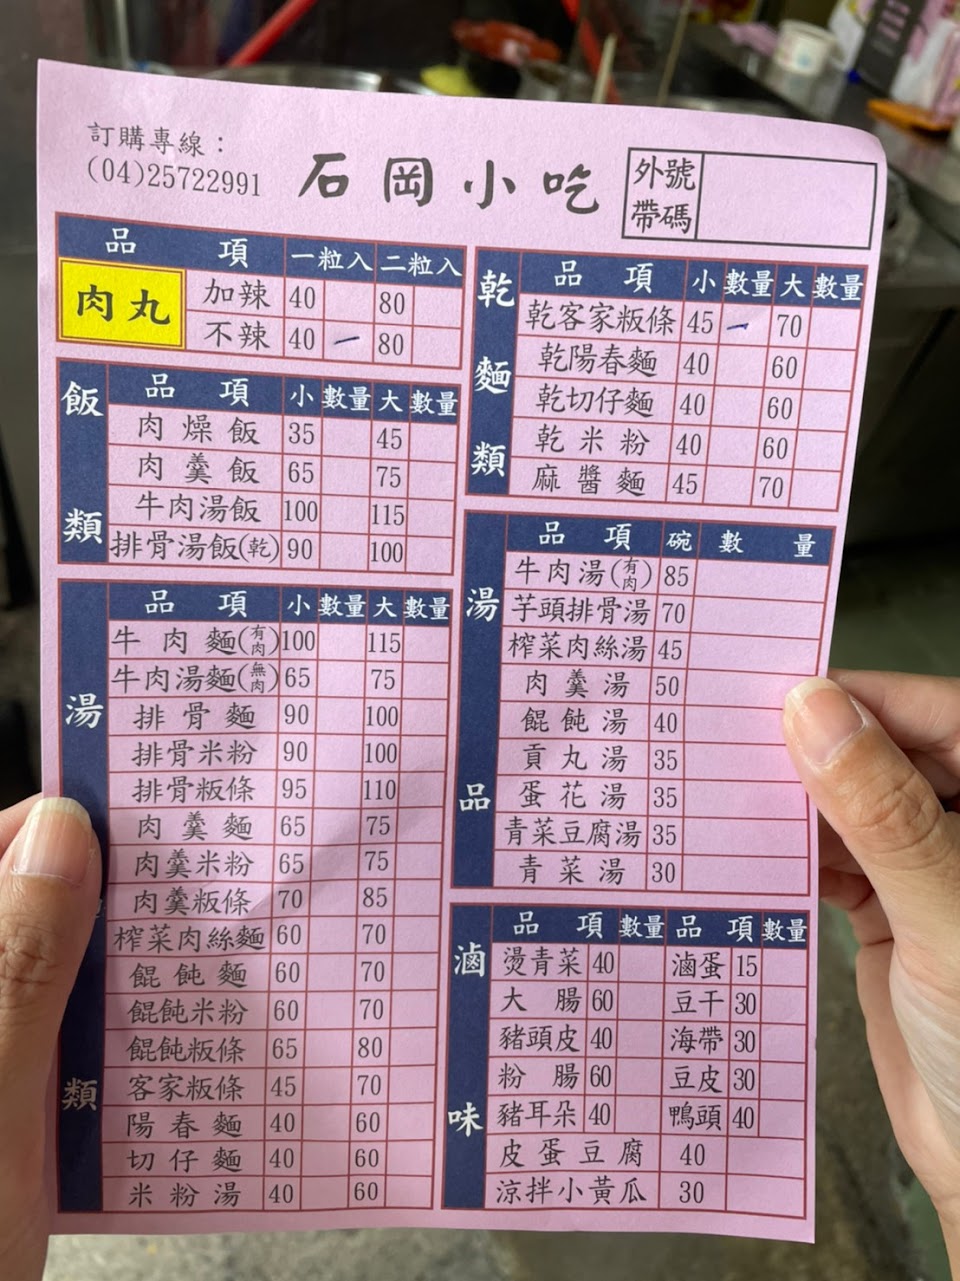 訂購專線：
(04)25722991
石岡小吃
外帶號碼
品項 一粒入 二粒入
肉丸
加辣 40 80
不辣 40 一 80
飯類
品項 小 數量 大 數量
肉燥飯 35 45
肉羹飯 65 75
牛肉湯飯 100 115
排骨湯飯(乾) 90 100
湯麵類
品項 小 數量 大 數量
牛肉麵(有肉) 100 115
牛肉湯麵(無肉) 65 75
排骨麵 90 100
排骨米粉 90 100
排骨粄條 95 110
肉羹麵 65 75
肉羹米粉 65 75
肉羹粄條 70 85
榨菜肉絲麵 60 70
餛飩麵 60 70
餛飩米粉 60 70
餛飩粄條 65 80
客家粄條 45 70
陽春麵 40 60
切仔麵 40 60
米粉湯 40 60
乾麵類
品項 小 數量 大 數量
乾客家粄條 45 一 70
乾陽春麵 40 60
乾切仔麵 40 60
乾米粉 40 60
麻醬麵 45 70
湯品
品項 碗 數量
牛肉湯(有肉) 85
芋頭排骨湯 70
榨菜肉絲湯 45
肉羹湯 50
餛飩湯 40
貢丸湯 35
蛋花湯 35
青菜豆腐湯 35
青菜湯 30
滷味
品項 數量 品項 數量
燙青菜 40 滷蛋 15
大腸 60 豆干 30
豬頭皮 40 海帶 30
粉腸 60 豆皮 30
豬耳朵 40 鴨頭 40
皮蛋豆腐 40
涼拌小黃瓜 30